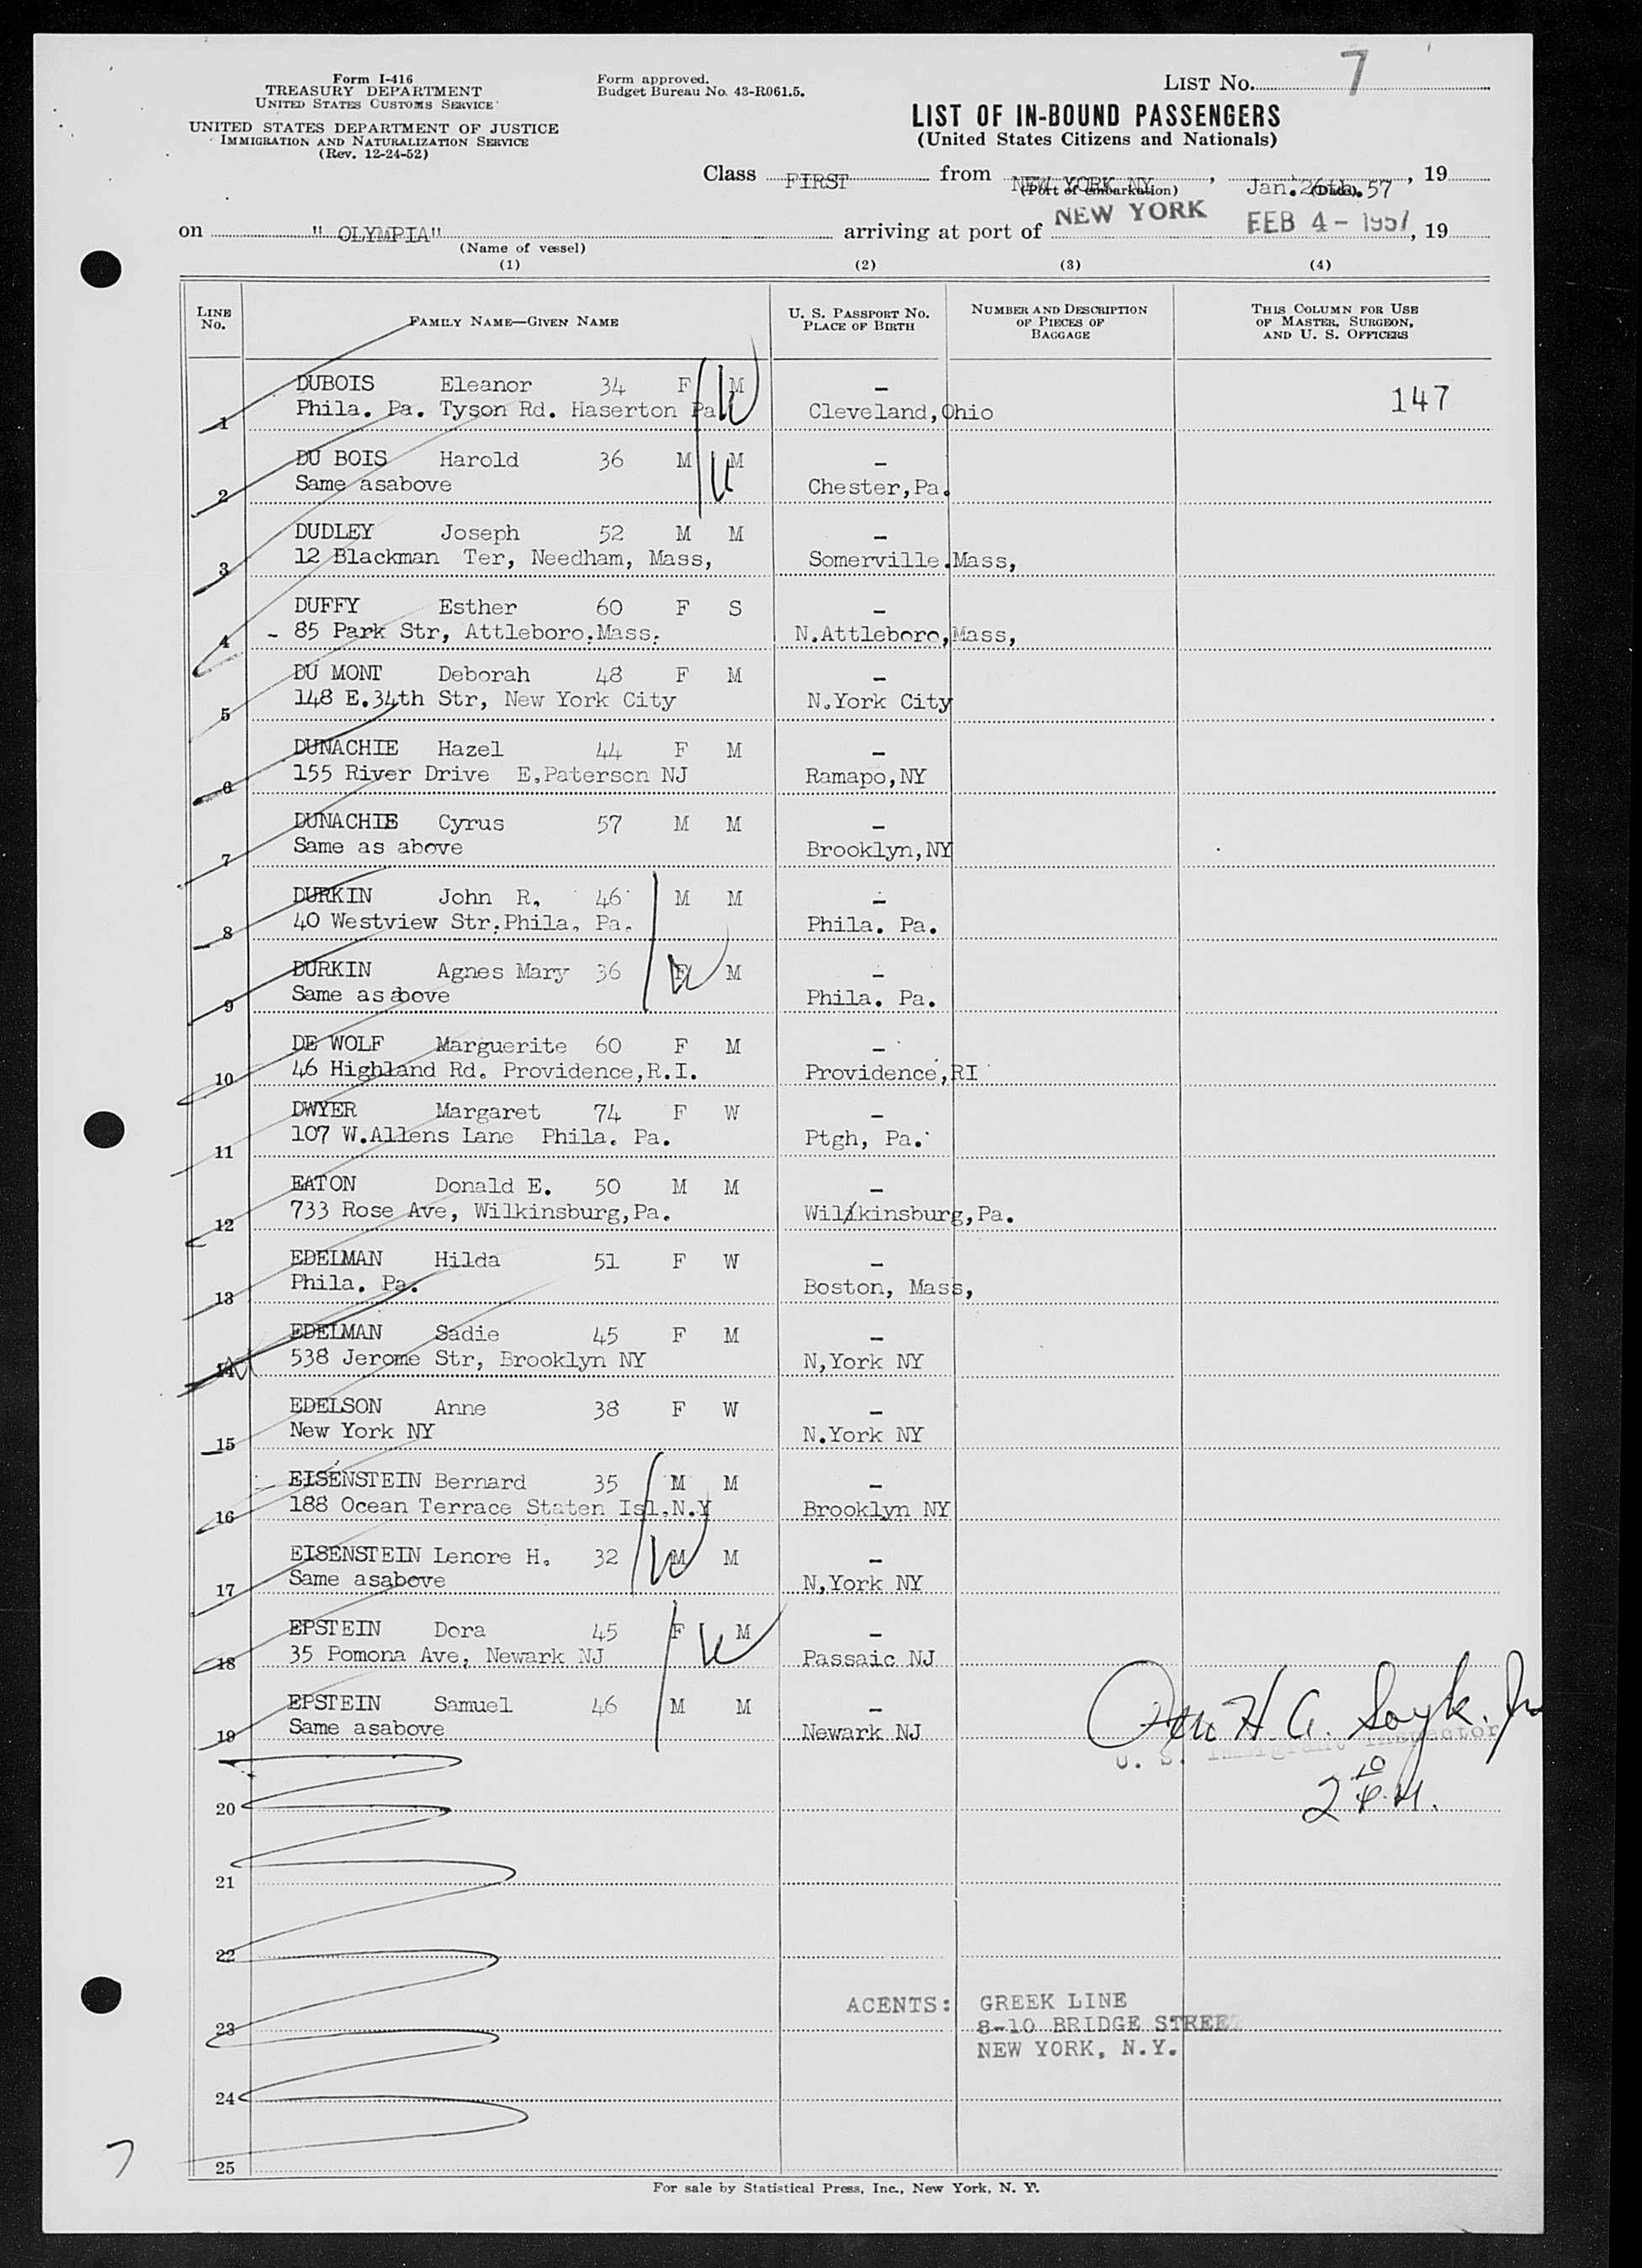 Form I-416
TREASURY DEPARTMENT
UNITED STATES CUSTOMS SERVICE
UNITED STATES DEPARTMENT OF JUSTICE
IMMIGRATION AND NATURALIZATION SERVICE
(Rev. 12-24-52)
Form approved.
Budget Bureau No. 43-R061.5.
LIST NO. 7
LIST OF IN-BOUND PASSENGERS
(United States Citizens and Nationals)
Class FIRST from NEW YORK NY, Jan. 26th. 57, 19
(Port of embarkation) (Date)
on " OLYMPIA" arriving at port of NEW YORK FEB 4 - 1957, 19
(Name of vessel)
(1) (2) (3) (4)
LINE No. FAMILY NAME—GIVEN NAME U. S. PASSPORT NO. PLACE OF BIRTH NUMBER AND DESCRIPTION OF PIECES OF BAGGAGE THIS COLUMN FOR USE OF MASTER, SURGEON, AND U. S. OFFICERS
DUBOIS Eleanor 34 F M – 147
1 Phila. Pa. Tyson Rd. Haserton Pa Cleveland,Ohio
DU BOIS Harold 36 M M –
2 Same asabove Chester,Pa.
DUDLEY Joseph 52 M M –
3 12 Blackman Ter, Needham, Mass, Somerville.Mass,
DUFFY Esther 60 F S –
4 - 85 Park Str, Attleboro.Mass. N.Attleboro,Mass,
DU MONT Deborah 48 F M –
5 148 E.34th Str, New York City N.York City
DUNACHIE Hazel 44 F M –
6 155 River Drive E.Paterson NJ Ramapo,NY
DUNACHIE Cyrus 57 M M –
7 Same as above Brooklyn,NY
DURKIN John R, 46 M M –
8 40 Westview Str.Phila. Pa. Phila. Pa.
DURKIN Agnes Mary 36 F M –
9 Same as above Phila. Pa.
DE WOLF Marguerite 60 F M –
10 46 Highland Rd. Providence,R.I. Providence,RI
DWYER Margaret 74 F W –
11 107 W.Allens Lane Phila. Pa. Ptgh, Pa.
EATON Donald E. 50 M M –
12 733 Rose Ave, Wilkinsburg,Pa. Wil/kinsburg,Pa.
EDELMAN Hilda 51 F W –
13 Phila. Pa. Boston, Mass,
EDELMAN Sadie 45 F M –
14 538 Jerome Str, Brooklyn NY N,York NY
EDELSON Anne 38 F W –
15 New York NY N.York NY
EISENSTEIN Bernard 35 M M –
16 188 Ocean Terrace Staten Isl.N.Y Brooklyn NY
EISENSTEIN Lenore H. 32 M M –
17 Same asabove N,York NY
EPSTEIN Dora 45 F M –
18 35 Pomona Ave, Newark NJ Passaic NJ
EPSTEIN Samuel 46 M M –
19 Same asabove Newark NJ
H. A. Soyk. Jr
U. S. Immigrant Inspector
2 10 P.M.
20
21
22
23
24
25
ACENTS: GREEK LINE
8-10 BRIDGE STREET
NEW YORK, N.Y.
7
For sale by Statistical Press, Inc., New York, N. Y.